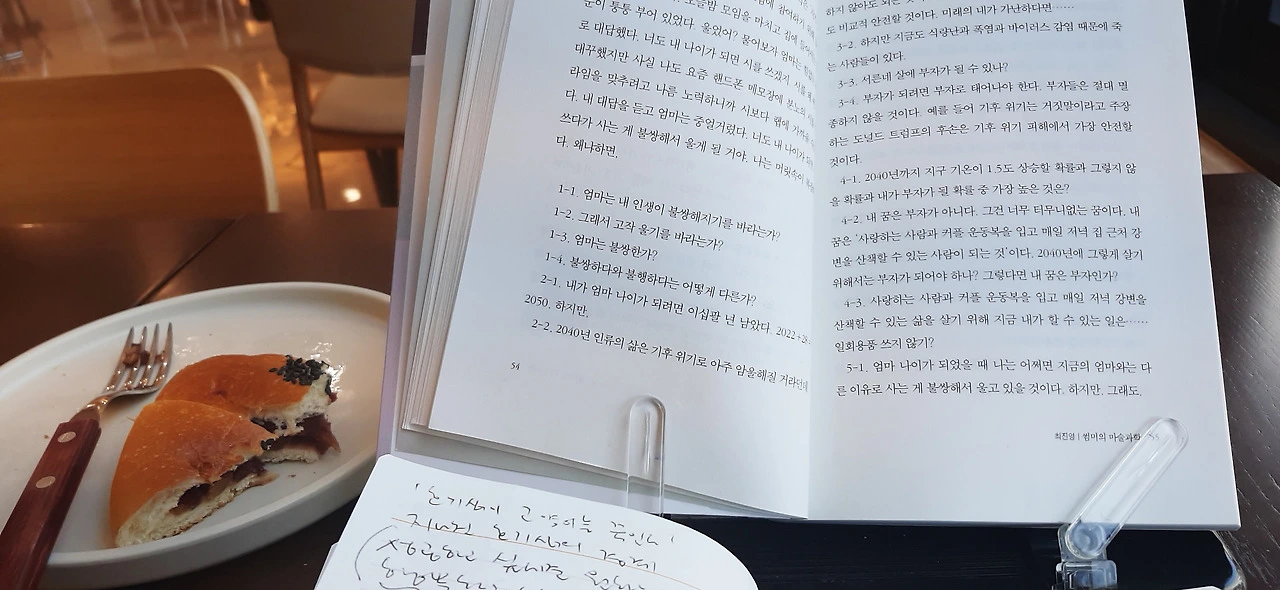 눈이 퉁퉁 부어 있었다. 울었어? 물어보자 엄마는
로 대답했다. 너도 내 나이가 되면 시를 쓰겠지
대꾸했지만 사실 나도 요즘 핸드폰 메모장에
라임을 맞추려고 나름 노력하니까 시보다 랩에
다. 내 대답을 듣고 엄마는 중얼거렸다. 너도 내 나이가
쓰다가 사는 게 불쌍해서 울게 된 거야. 나는 머릿속이
다. 왜냐하면,
1-1. 엄마는 내 인생이 불쌍해지기를 바라는가?
1-2. 그래서 고작 울기를 바라는가?
1-3. 엄마는 불쌍한가?
1-4. 불쌍하다와 불행하다는 어떻게 다른가?
2-1. 내가 엄마 나이가 되려면 이십팔 년 남았다. 2022+28
2050. 하지만,
2-2. 2040년 인류의 삶은 기후 위기로 아주 암울해질 거라던데
54
하지 않아도 되는
도 비교적 안전할 것이다. 미래의 내가 가난하다면……
3-2. 하지만 지금도 식량난과 폭염과 바이러스 감염 때문에 죽
는 사람들이 있다.
3-3. 서른네 살에 부자가 될 수 있나?
3-4. 부자가 되려면 부자로 태어나야 한다. 부자들은 절대 멸
종하지 않을 것이다. 예를 들어 기후 위기는 거짓말이라고 주장
하는 도널드 트럼프의 후손은 기후 위기 피해에서 가장 안전할
것이다.
4-1. 2040년까지 지구 기온이 1.5도 상승할 확률과 그렇지 않
을 확률과 내가 부자가 될 확률 중 가장 높은 것은?
4-2. 내 꿈은 부자가 아니다. 그건 너무 터무니없는 꿈이다. 내
꿈은 '사랑하는 사람과 커플 운동복을 입고 매일 저녁 집 근처 강
변을 산책할 수 있는 사람이 되는 것'이다. 2040년에 그렇게 살기
위해서는 부자가 되어야 하나? 그렇다면 내 꿈은 부자인가?
4-3. 사랑하는 사람과 커플 운동복을 입고 매일 저녁 강변을
산책할 수 있는 삶을 살기 위해 지금 내가 할 수 있는 일은……
일회용품 쓰지 않기?
5-1. 엄마 나이가 되었을 때 나는 어쩌면 지금의 엄마와는 다
른 이유로 사는 게 불쌍해서 울고 있을 것이다. 하지만, 그래도,
최진영 | 썸머의 마술과학 55